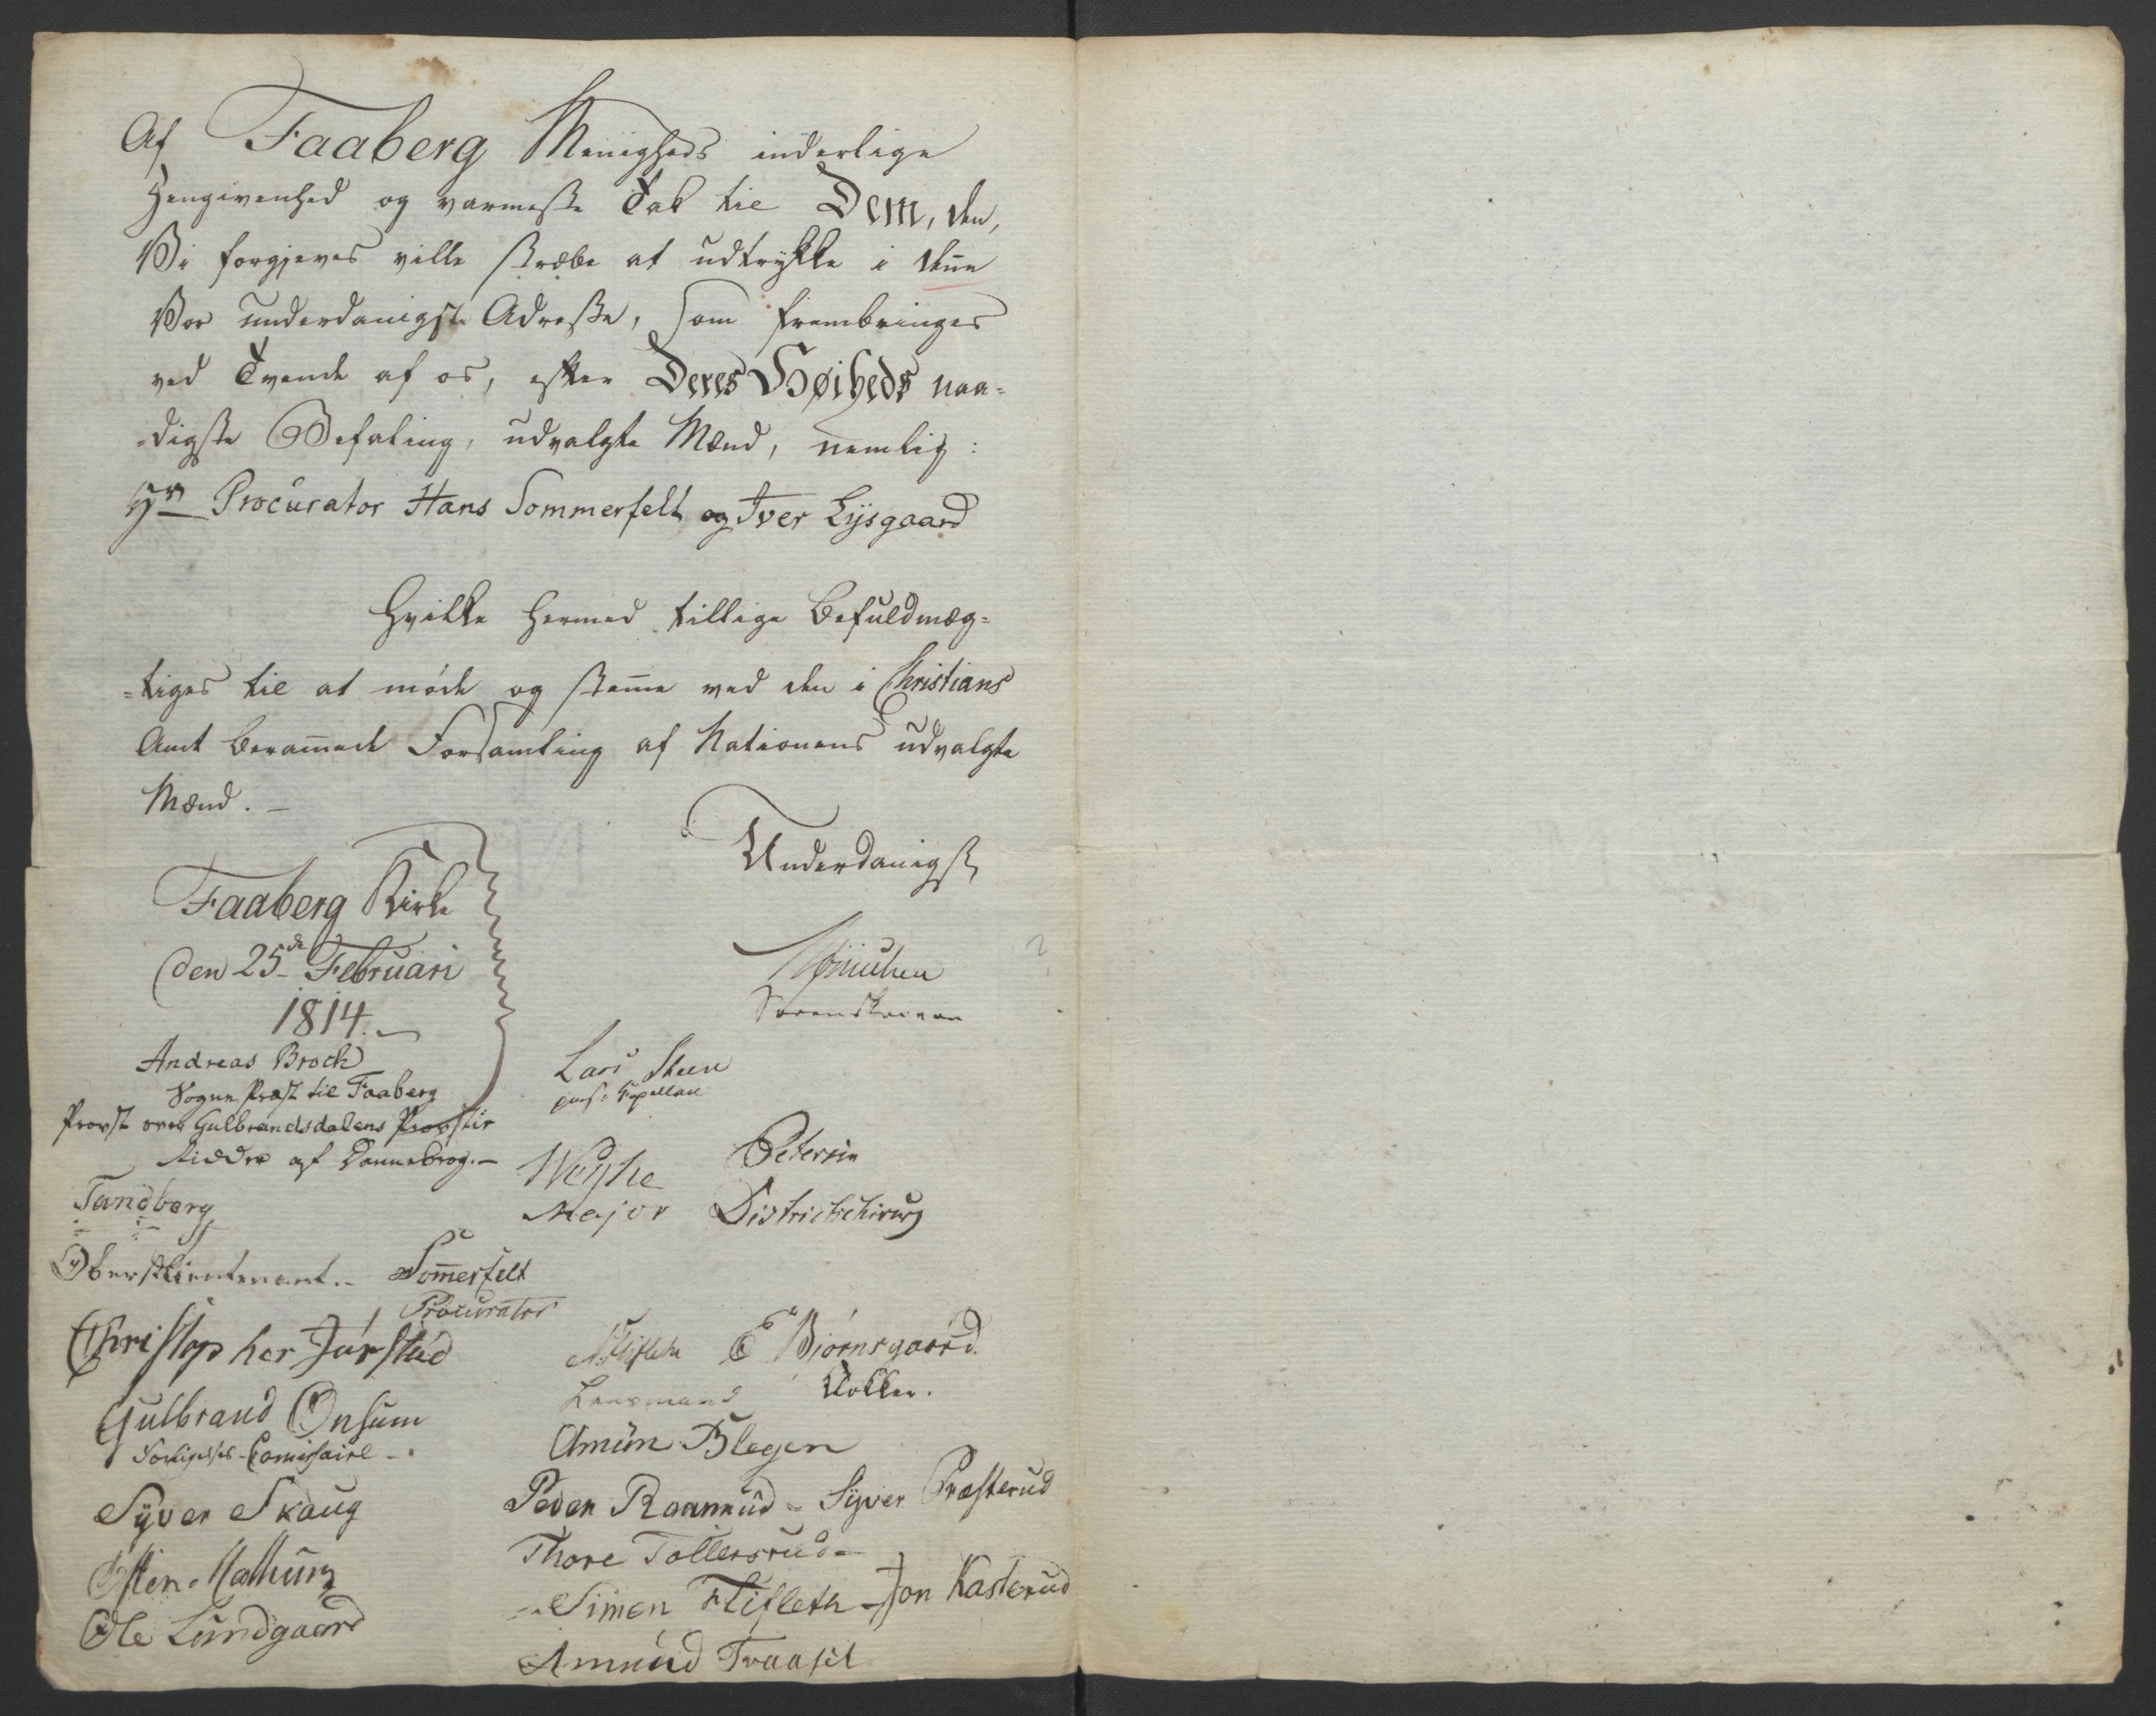 Af Faaberg Menigheds inderlige
Hengivenhed og varmeste Tak til Dem, den,
Vi forgjeves ville stræbe at udtrykke i denne
Vor underdanigste Adresse, som frembringes
ved Tvende af os, efter Deres Høiheds naa-
-digste Befaling, udvalgte Mænd, nemlig:
Hr Procurator Hans Sommerfelt og Iver Lysgaard
Hvilke hermed tillige befuldmæg-
-tiges til at møde og stemme ved den i Christians
Amt berammede Forsamling af Nationens udvalgte
Mænd. -
Underdanigst
Faaberg Kirke
den 25de Februari
1814.
Sorenskriver
Andreas Broch
Sogne Præst til Faaberg
Provst over Gulbrandsdalens Provstie
Ridder af Dannebrog. -
Lars Steen
pers: Kapellan
Weyhe
Major
Petersen
Districtschirurg
Tandberg
Oberstlieutenant. -
Sommerfelt
Procurator
Christopher Jørstad
Flifleth
Lensmand
E Biørnsgaard
Klokker.
Gulbrand Onsum
Forligelses-Comissaire -
Amun Blegen
Syver Skaug
Peder Raanrud - Syver Præsterud
Thore Tollersrud -
Østen
Simen Flifleth - Jon Kasterud
Ole Lundgaard
Amund Traasel